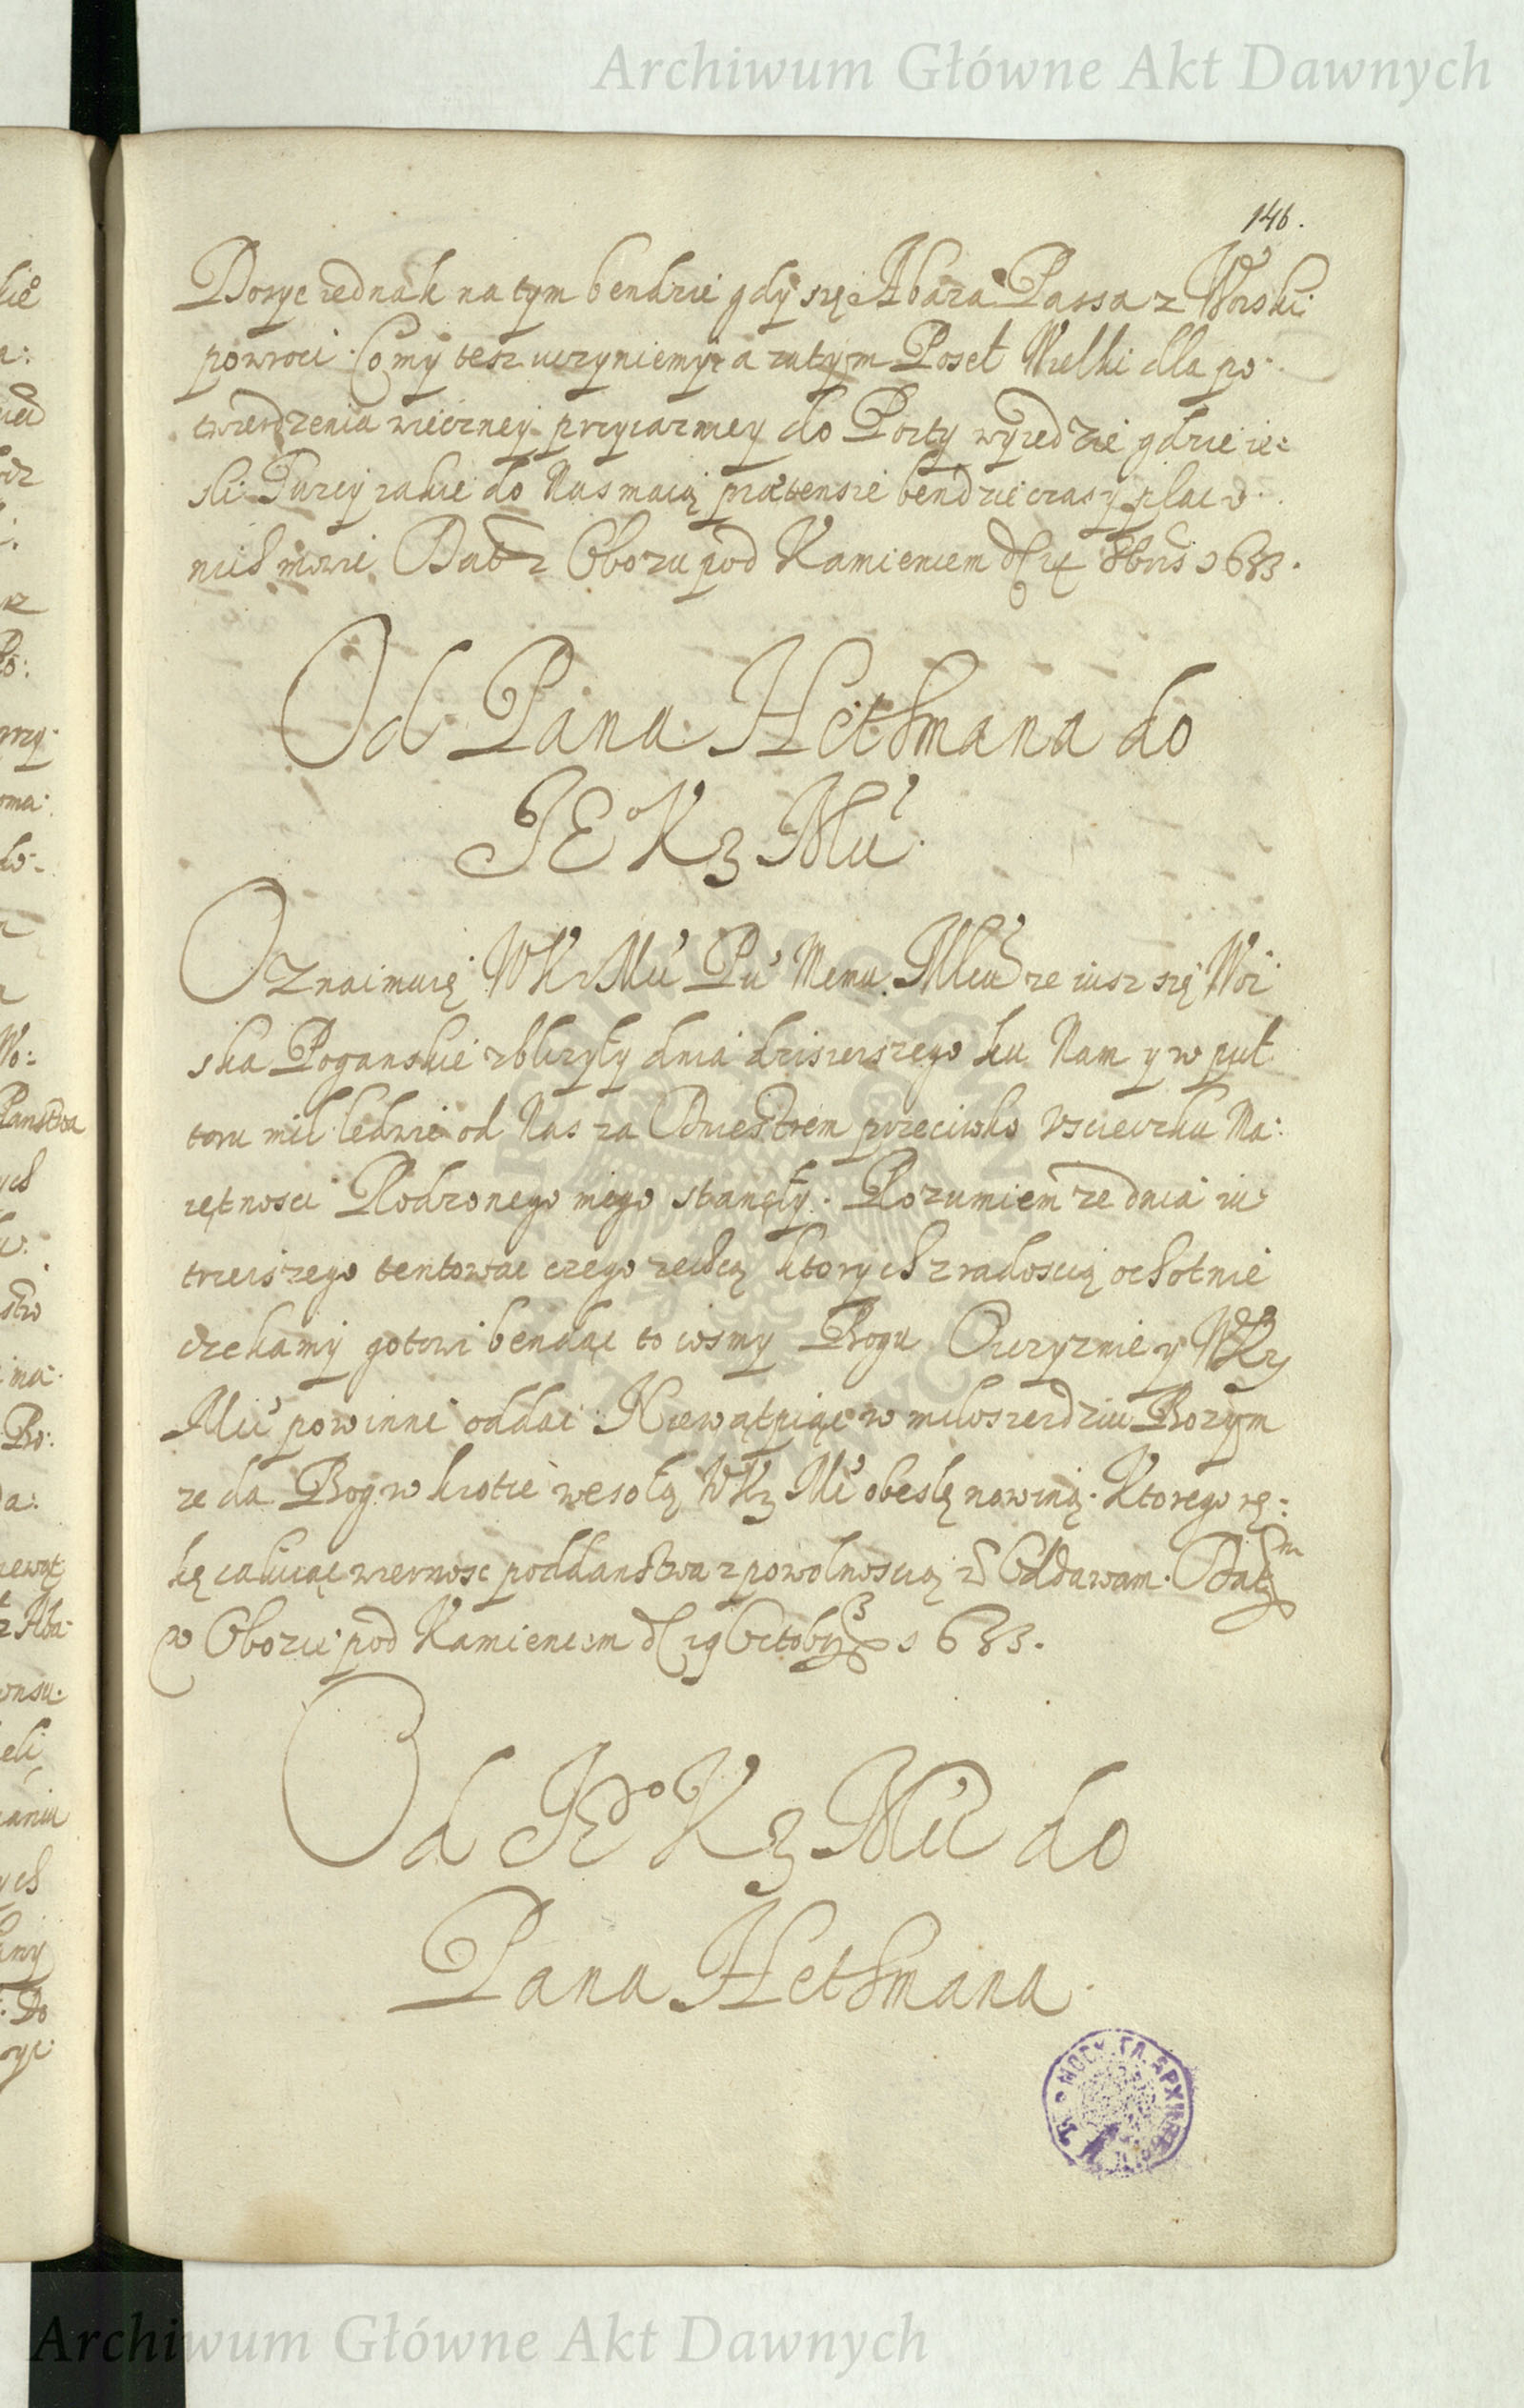 Archiwum Główne Akt Dawnych
146.
Dosyc iednak na tym bendzie gdy się Abaza Passa z Woiski
powroci. Co my tesz uczyniemy, a zatym Poseł Wielki dla po:
twierdzenia wieczney przyiazniey do Porty wyiedzie gdzie ie:
sli Turcy iakie do Nas maią praetensie bendzie czas y plac o
nich mowic Dat z Obozu pod Kamieniem 8bris 1633.
Od Pana Hethmana do
JE° Kr Mci
Oznaimuię WKr Mci Pu Memu Mciu ze iusz się Woi
ska Poganskie zblizyły dnia dzisieiszego ku Nam y w puł
toru mil ledwie od Nas za Dniestrem przeciwko Uscieczku Ma:
iętnosci Rodzonego mego stanęły. Rozumiem ze dnia iu
trzeiszego tentowac czego zechcą ktorych z radoscią ochotnie
czekamy gotowi bendąc to cosmy Bogu Oiczyznie y WKr
Mci powinni oddac. Niewątpiąc w miłoszerdziu Bozym
ze da Bog w krotce wesołą WKr Mc obeslę nowiną. Ktorego rę:
kę całuiąc wiernosc poddanstwa z powolnoscią Oddawam. Datt
w Obozie pod Kamieniem d 19 Octobris 1633.
Od JE° Kr Mci do
Pana Hethmana.
Archiwum Główne Akt Dawnych